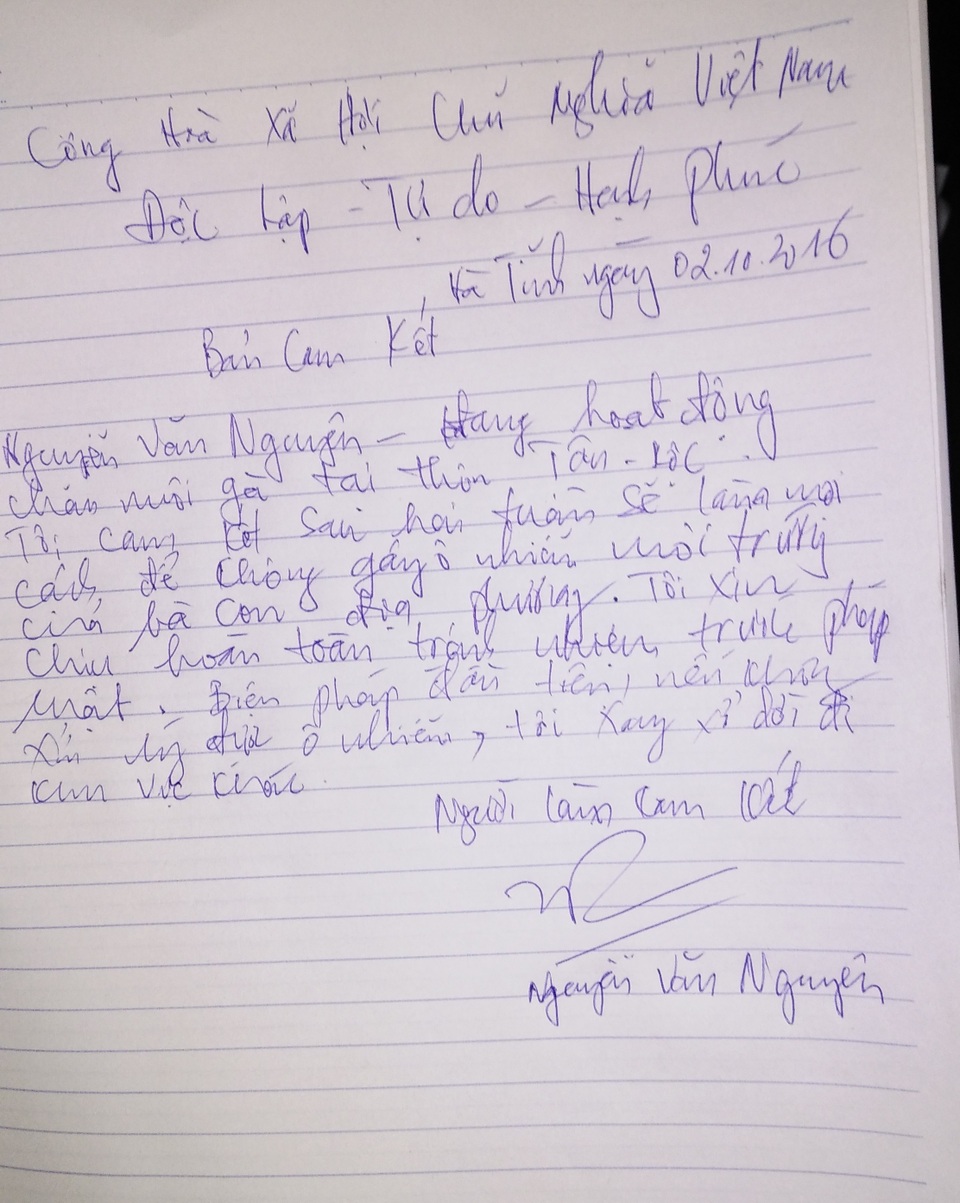 Công Hoà Xã Hội Chủ Nghĩa Việt Nam
Độc lập - Tự do - Hạnh phúc
Hà Tĩnh ngày 02.10.2016
Bản Cam Kết
Nguyễn Văn Nguyên - đang hoạt động
chăn nuôi gà tại thôn Tân - Lộc.
Tôi cam kết sau hai tuần sẽ làm mọi
cách để không gây ô nhiễm môi trường
của bà con địa phương. Tôi xin
chịu hoàn toàn trách nhiệm trước pháp
luật. Biện pháp đầu tiên, nếu không
xử lý được ô nhiễm, tôi xay xỉ dời đi
khu vực khác.
Người làm cam kết
Nguyễn Văn Nguyên